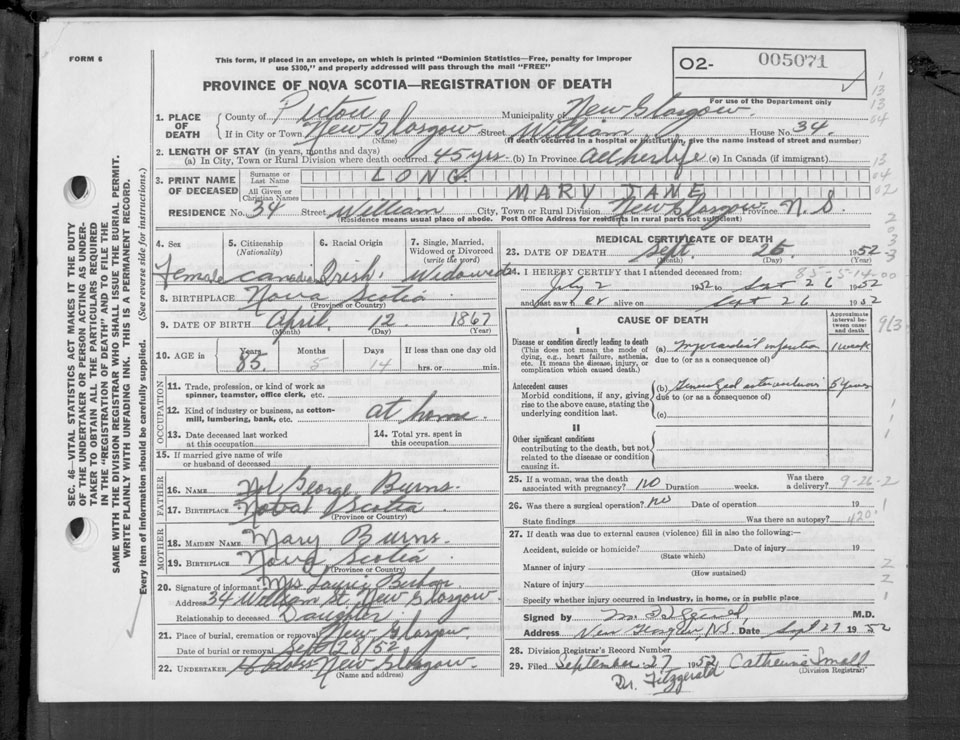 FORM 6
This form, if placed in an envelope, on which is printed "Dominion Statistics—Free, penalty for improper
use $300," and properly addressed will pass through the mail "FREE"
PROVINCE OF NOVA SCOTIA—REGISTRATION OF DEATH
O2- 005071
For use of the Department only
1. PLACE OF DEATH
County of Pictou Municipality of New Glasgow.
If in City or Town New Glasgow Street William House No. 34.
(Name) (If death occurred in a hospital or institution, give the name instead of street and number)
2. LENGTH OF STAY (in years, months and days)
(a) In City, Town or Rural Division where death occurred 45 yrs. (b) In Province All her life (c) In Canada (if immigrant)
3. PRINT NAME OF DECEASED
Surname or Last Name LONG.
All Given or Christian Names MARY JANE
RESIDENCE No. 34 Street William City, Town or Rural Division New Glasgow Province N.S
(Residence means usual place of abode. Post Office Address for residents in rural parts not sufficient)
4. Sex Female
5. Citizenship (Nationality) Canadian
6. Racial Origin Irish.
7. Single, Married, Widowed or Divorced (write the word) Widowed
8. BIRTHPLACE Nova Scotia
(Province or Country)
9. DATE OF BIRTH April 12 1867
(Month) (Day) (Year)
10. AGE in Years Months Days If less than one day old
85 5 14 hrs. or min.
OCCUPATION
11. Trade, profession, or kind of work as spinner, teamster, office clerk, etc.
12. Kind of industry or business, as cotton-mill, lumbering, bank, etc. at home.
13. Date deceased last worked at this occupation
14. Total yrs. spent in this occupation
15. If married give name of wife or husband of deceased
FATHER
16. NAME George Burns.
17. BIRTHPLACE Nova Scotia
(Province or Country)
MOTHER
18. MAIDEN NAME Mary Burns.
19. BIRTHPLACE Nova Scotia
(Province or Country)
20. Signature of informant Mrs Laurie
Address 34 William St. New Glasgow
Relationship to deceased Daughter
21. Place of burial, cremation or removal New Glasgow.
Date of burial or removal Sept 28/52
22. UNDERTAKER New Glasgow.
(Name and address)
MEDICAL CERTIFICATE OF DEATH
23. DATE OF DEATH Sept. 26. 1952
(Month) (Day) (Year)
85-5-14-00
24. I HEREBY CERTIFY that I attended deceased from:
July 2 1952 to Sept 26 1952
and last saw er alive on Sept 26 1952
CAUSE OF DEATH
Approximate interval between onset and death
I
Disease or condition directly leading to death
(This does not mean the mode of dying, e.g., heart failure, asthenia, etc. It means the disease, injury, or complication which caused death.)
(a) Myocardial infarction 1 week
due to (or as a consequence of)
Antecedent causes
Morbid conditions, if any, giving rise to the above cause, stating the underlying condition last.
(b) Generalized arteriosclerosis 5 years
due to (or as a consequence of)
(c)
II
Other significant conditions
contributing to the death, but not related to the disease or condition causing it.
25. If a woman, was the death associated with pregnancy? no Duration weeks. Was there a delivery?
9-26-2
26. Was there a surgical operation? no Date of operation 19
State findings Was there an autopsy?
27. If death was due to external causes (violence) fill in also the following:—
Accident, suicide or homicide? Date of injury 19
(State which)
Manner of injury
(How sustained)
Nature of injury
Specify whether injury occurred in industry, in home, or in public place
Signed by M.D.
Address New Glasgow NS Date Sept 27 1952
28. Division Registrar's Record Number
29. Filed September 27 1952 Catherine Small
(Division Registrar)
Dr. Fitzgerald
SEC. 46—VITAL STATISTICS ACT MAKES IT THE DUTY
OF THE UNDERTAKER OR PERSON ACTING AS UNDER-
TAKER TO OBTAIN ALL THE PARTICULARS REQUIRED
IN THE "REGISTRATION OF DEATH" AND TO FILE THE
SAME WITH THE DIVISION REGISTRAR WHO SHALL ISSUE THE BURIAL PERMIT.
WRITE PLAINLY WITH UNFADING INK. THIS IS A PERMANENT RECORD.
Every item of information should be carefully supplied. (See reverse side for instructions.)